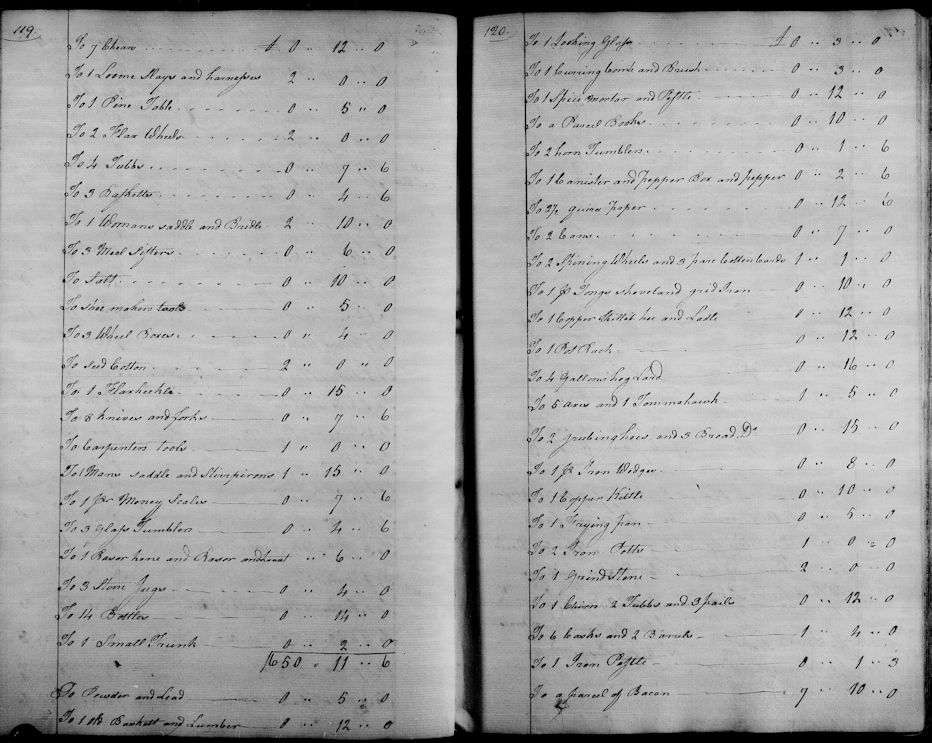 119
To 7 Chears £ 0 " 12 " 0
To 1 Loome Slays and harnesses 2 " 0 " 0
To 1 Pine Table 0 " 5 " 0
To 2 Flax Wheels 2 " 0 " 0
To 4 Tubbs 0 " 7 " 6
To 3 Basketts 0 " 4 " 6
To 1 Womans saddle and Bridle 2 " 10 " 0
To 3 Meal Sifters 0 " 6 " 0
To Salt 0 " 10 " 0
To shoe makers tools 0 " 5 " 0
To 3 Wheel Boxes 0 " 4 " 0
To seed Cotton 2 " 0 " 0
To 1 Flaxheckle 0 " 15 " 0
To 8 knives and forks 0 " 7 " 6
To Carpenters tools 1 " 0 " 0
To 1 Mans saddle and Stirpirons 1 " 15 " 0
To 1 pr Money Scales 0 " 7 " 6
To 3 Glass Tumblers 0 " 4 " 6
To 1 Rasor hone and Rasor and " 6 " 0
To 3 Stone Jugs 0 " 4 " 0
To 14 Bottles 0 " 14 " 0
To 1 Small Trunk 0 " 2 " 0
650 " 11 " 6
To Powder and Lead 0 " 5 " 0
To 1 old Baskett and Lumber 0 " 12 " 0
120
To 1 Looking Glass £ 0 " 3 " 0
To 1 Curring Comb and Brush 0 " 3 " 0
To 1 Spice mortar and Pestle 0 " 12 " 0
To a Parcel Books 0 " 10 " 0
To 2 horn Tumblers 0 " 1 " 6
To 1 Canister and pepper Box and pepper 0 " 2 " 6
To 2½ quires paper 0 " 12 " 6
To 2 Cans 0 " 7 " 0
To 2 Spining Wheels and 3 pare Cotton Cards 1 " 1 " 0
To 1 pr Tongs shovel and grid Iron 0 " 10 " 0
To 1 Copper Skillit hoe and Ladle 0 " 12 " 0
To 1 Pot Rack 0 " 12 " 0
To 4 Gallons hog Lard 0 " 16 " 0
To 5 axes and 1 Tommahawk 1 " 5 " 0
To 2 grubing hoes and 3 Broad Do 0 " 15 " 0
To 1 pr Iron Wedges 0 " 8 " 0
To 1 Copper Kittle 0 " 10 " 0
To 1 Frying pan 0 " 5 " 0
To 2 Iron Potts 1 " 0 " 0
To 1 Grind Stone 2 " 0 " 0
To 1 Churn 2 Tubbs and 3 pails 0 " 12 " 0
To 6 Casks and 2 Barrels 1 " 4 " 0
To 1 Iron Pestle 0 " 1 " 3
To a parcel of Bacon 7 " 10 " 0